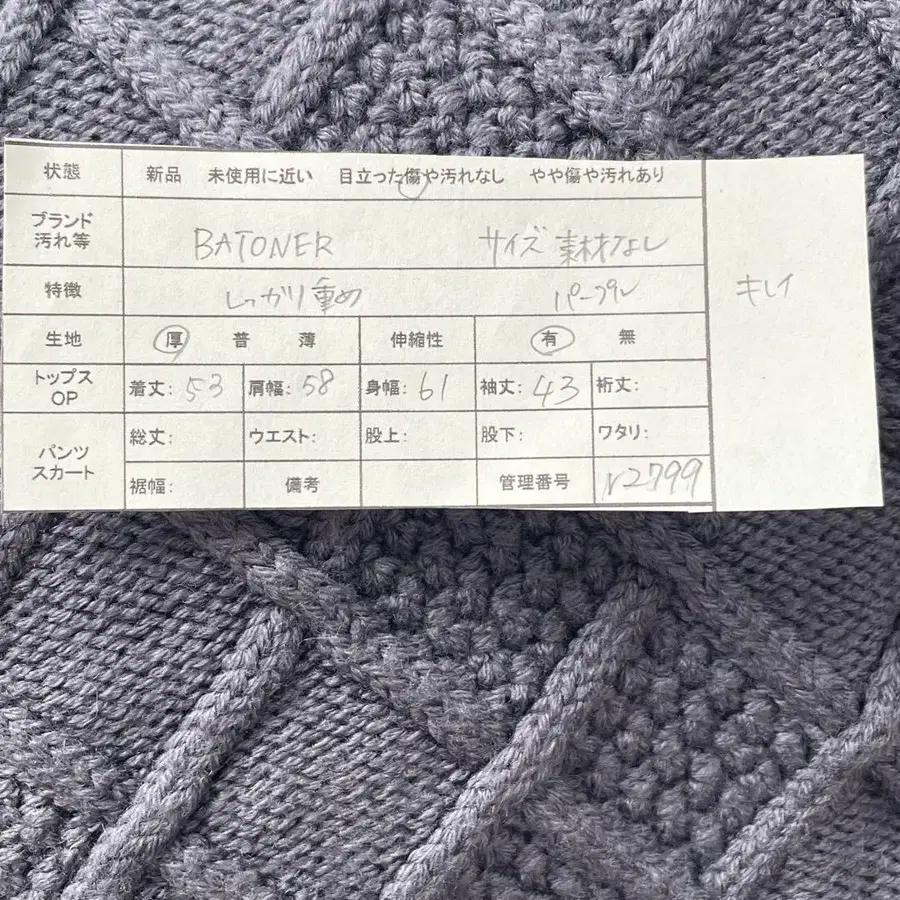 状態 新品 未使用に近い 目立った傷や汚れなし やや傷や汚れあり
ブランド
汚れ等 BATONER サイズ 素材なし
キレイ
特徴 しっかり重め パープル
生地 厚 普 薄 伸縮性 有 無
トップス
OP 着丈: 53 肩幅: 58 身幅: 61 袖丈: 43 裄丈:
パンツ
スカート 総丈: ウエスト: 股上: 股下: ワタリ:
裾幅: 備考 管理番号 r2799